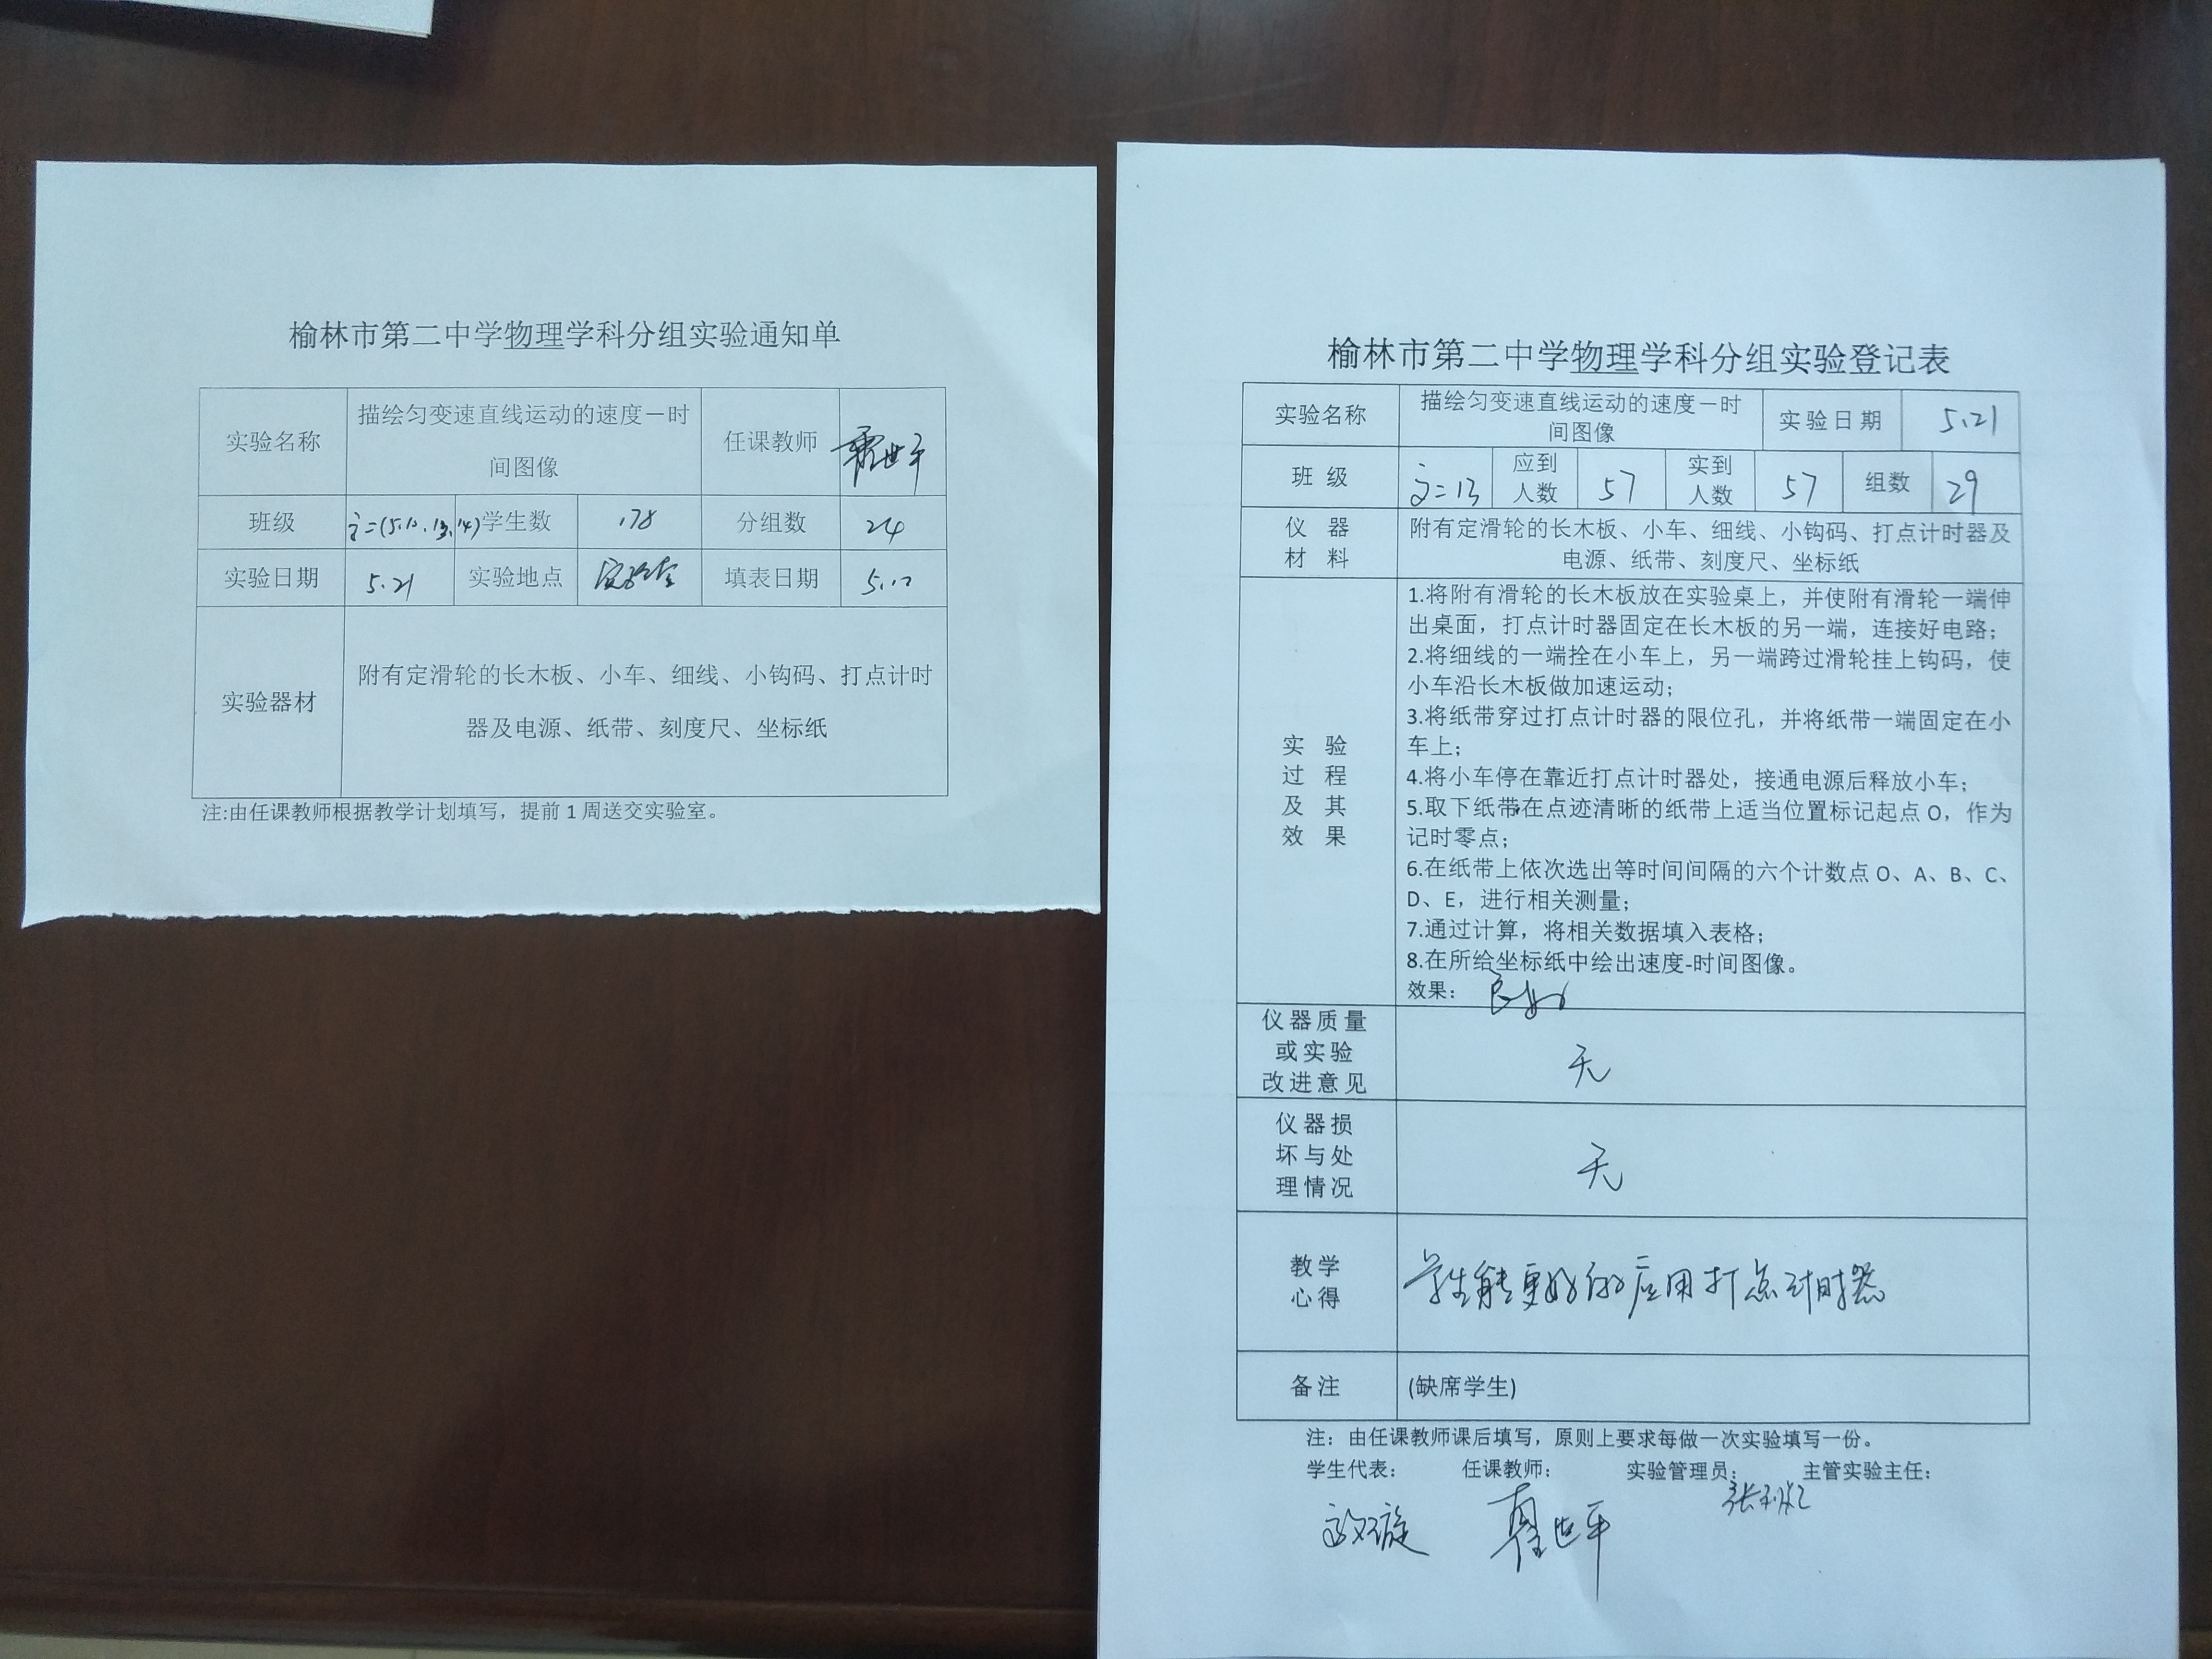 榆林市第二中学物理学科分组实验通知单
实验名称
描绘匀变速直线运动的速度－时
间图像
任课教师
班级
学生数
178
分组数
24
实验日期
5.21
实验地点
实验室
填表日期
实验器材
附有定滑轮的长木板、小车、细线、小钩码、打点计时
器及电源、纸带、刻度尺、坐标纸
注:由任课教师根据教学计划填写，提前 1 周送交实验室。
榆林市第二中学物理学科分组实验登记表
实验名称
描绘匀变速直线运动的速度－时
间图像
实验日期
5.21
班 级
应到
人数
57
实到
人数
57
组数
29
仪 器
材 料
附有定滑轮的长木板、小车、细线、小钩码、打点计时器及
电源、纸带、刻度尺、坐标纸
实 验
过 程
及 其
效 果
1.将附有滑轮的长木板放在实验桌上，并使附有滑轮一端伸
出桌面，打点计时器固定在长木板的另一端，连接好电路；
2.将细线的一端拴在小车上，另一端跨过滑轮挂上钩码，使
小车沿长木板做加速运动；
3.将纸带穿过打点计时器的限位孔，并将纸带一端固定在小
车上；
4.将小车停在靠近打点计时器处，接通电源后释放小车；
5.取下纸带在点迹清晰的纸带上适当位置标记起点 O，作为
记时零点；
6.在纸带上依次选出等时间间隔的六个计数点 O、A、B、C、
D、E，进行相关测量；
7.通过计算，将相关数据填入表格；
8.在所给坐标纸中绘出速度-时间图像。
效果： 良好
仪器质量
或实验
改进意见
无
仪器损
坏与处
理情况
无
教学
心得
学生能更好的应用打点计时器
备注
(缺席学生)
注：由任课教师课后填写，原则上要求每做一次实验填写一份。
学生代表： 任课教师： 实验管理员： 主管实验主任：